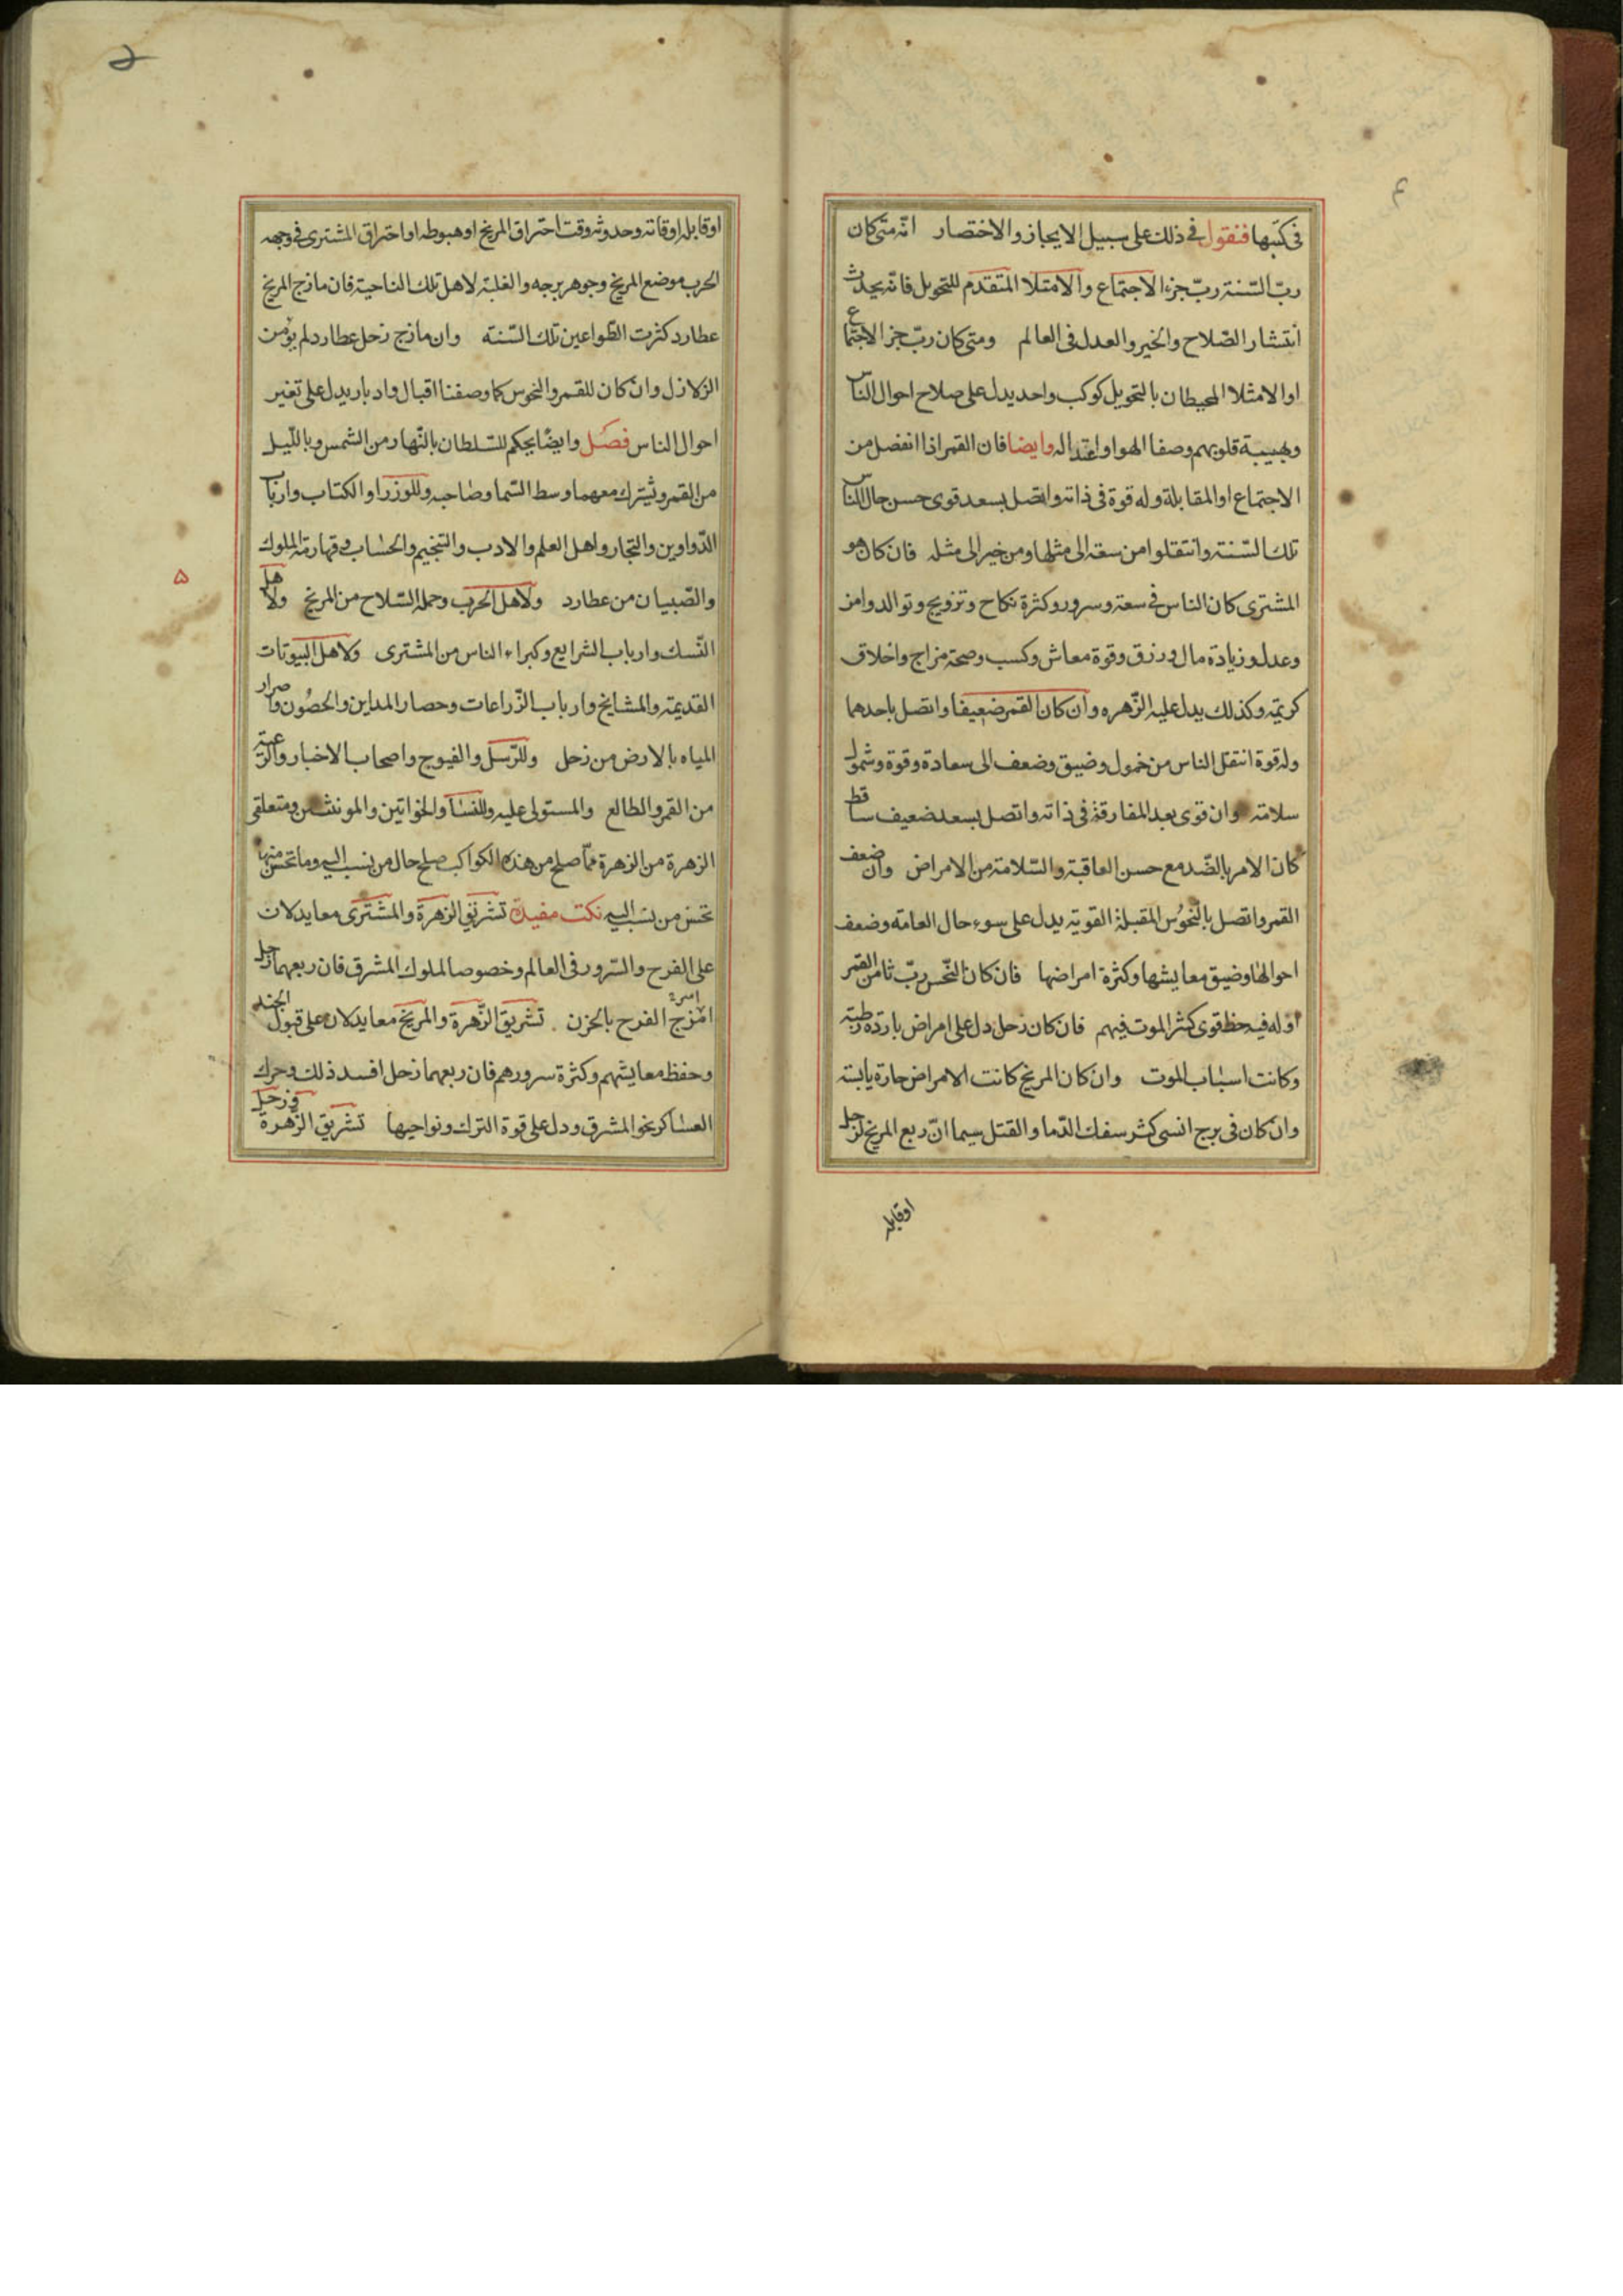 في كتبها فنقول في ذلك على سبيل الايجاز والاختصار انّه متى كان
ربّ السّنة ربّ جزء الاجتماع والامتلا المتقدّم للتحويل فانّه يحدث
أنتشار الصّلاح والخير والعدل فى العالم ومتى كان ربّ جز الاجتماع
او الامتلا المحيطان بالتحويل كوكب واحد يدل على صلاح احوال الناس
وهيبة قلوبهم وصفا الهوا واعتداله وايضا فان القمر اذا انفصل من
الاجتماع او المقابلة وله قوة فى ذاته واتصل بسعد قوى حسن حال الناس
تلك السّنة وانتقلوا من سعة الى مثلها ومن خير الى مثله فان كان هو
المشترى كان الناس في سعة وسرور وكثرة نكاح وتزويج وتوالد وامن
وعدل وزيادة مال ورزق وقوة معاش وكسب وصحة مزاج واخلاق
كريمة وكذلك يدل عليه الزّهره وان كان القمر ضعيفا واتصل باحدهما
وله قوة انتقل الناس من خمول وضيق وضعف الى سعادة وقوة وشمول
سلامة وان قوى بعد المفارقة فى ذاته واتصل بسعد ضعيف ساقط
كان الامر بالضّد مع حسن العاقبة والسّلامة من الامراض وان ضعف
القمر واتصل بالنّحوس المقبلة القوية يدل على سوء حال العامه وضعف
احوالها وضيق معايشها وكثرة امراضها فان كان النّحس ربّ ثامن القمر
او له فيه حظ قوى كثر الموت فيهم فان كان زحل دل على امراض باردة رطبة
وكانت اسباب الموت وان كان المريخ كانت الامراض حارة يابسة
وان كان فى برج انسى كثر سفك الدّما والقتل سيما انّ ربع المريخ لزحل
اوقابله
اوقابله اوقاته وحدوثه وقت احتراق المريخ او هبوطه او احتراق المشترى في وجهه
الحرب موضع المريخ وجوهر برجه والغلبة لاهل تلك الناحية فان مازج المريخ
عطارد كثرت الطّواعين تلك السّنة وان مازج زحل عطارد لم يؤمن
الزلازل وان كان للقمر والنحوس كما وصفنا اقبال وادبار يدل على تغير
احوال الناس فصل وايضًا يحكم للسّلطان بالنّهار من الشمس وبالليل
من القمر ويشترك معهما وسط السّما وصاحبه وللوزرا والكتاب وارباب
الدّواوين والتجار واهل العلم والادب والتنجيم والحساب وقهارمة الملوك
والصّبيان من عطارد ولاهل الحرب وحملة السّلاح من المريخ ولاهل
النّسك وارباب الشرايع وكبراء الناس من المشترى ولاهل البيوتات
القديمة والمشايخ وارباب الزّراعات وحصار المداين والحصُون
المياه بالارض من زحل وللرّسل والفيوج واصحاب الاخبار والرّعية
من القمر والطالع والمستولى عليه وللنسا والخواتين والمونثين ومتعلقى
الزهرة من الزهرة فمّا صلح من هذه الكواكب صلح حال من نسب اليه وما نحس منها
نحس من نسب اليه نكت مفيدة تشريق الزهرة والمشترى معا يدلان
على الفرح والسّرور فى العالم وخصوصا لملوك المشرق فان ربعهما زحل
امتزج الفرح بالحزن تشريق الزّهرة والمريخ معا يدلان على قبول
وحفظ معايشهم وكثرة سرورهم فان ربعهما زحل افسد ذلك وحرك
العساكر نحو المشرق ودل على قوة الترك ونواحيها تشريق الزّهرة وزحل
۵